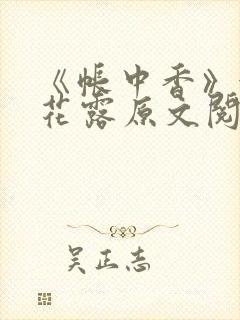 《帐中香》
花露原文阅
吴正志